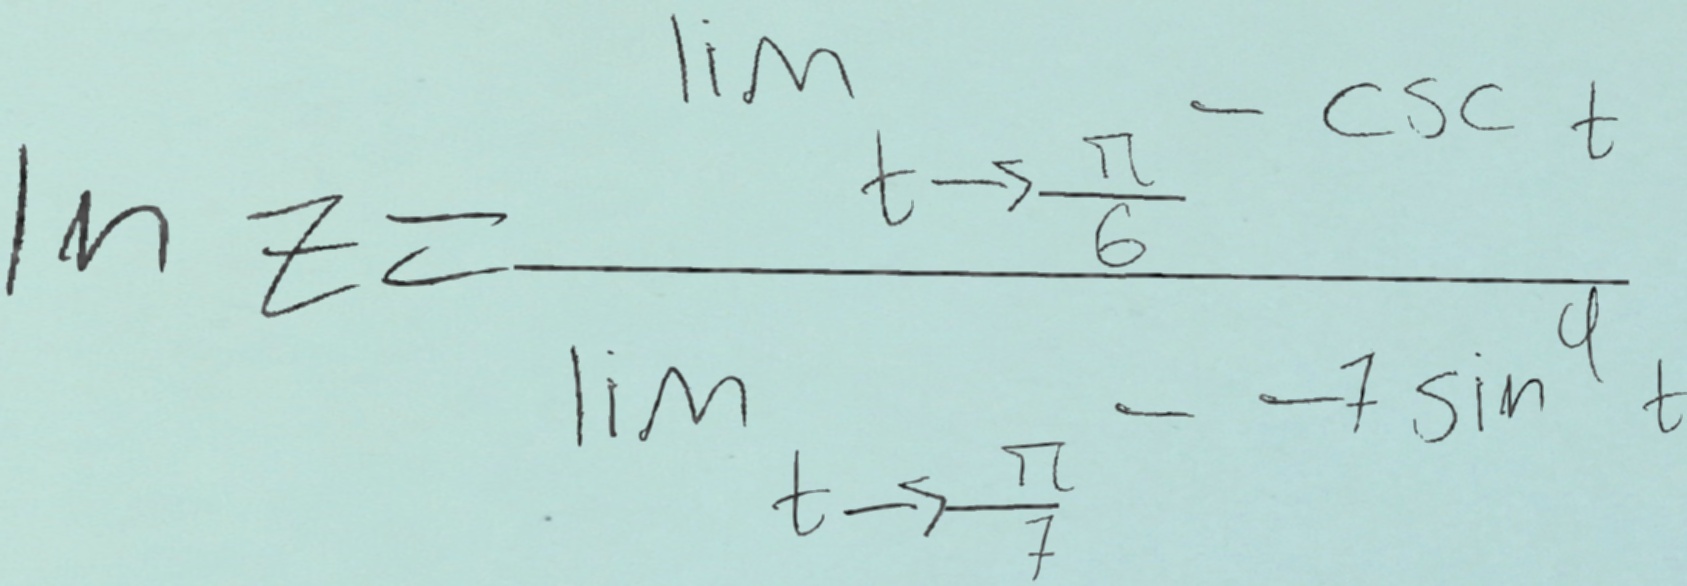 ln z = \frac{\lim_{t \to \frac{\pi}{6}} - \csc t}{\lim_{t \to \frac{\pi}{7}} - -7 \sin^4 t}